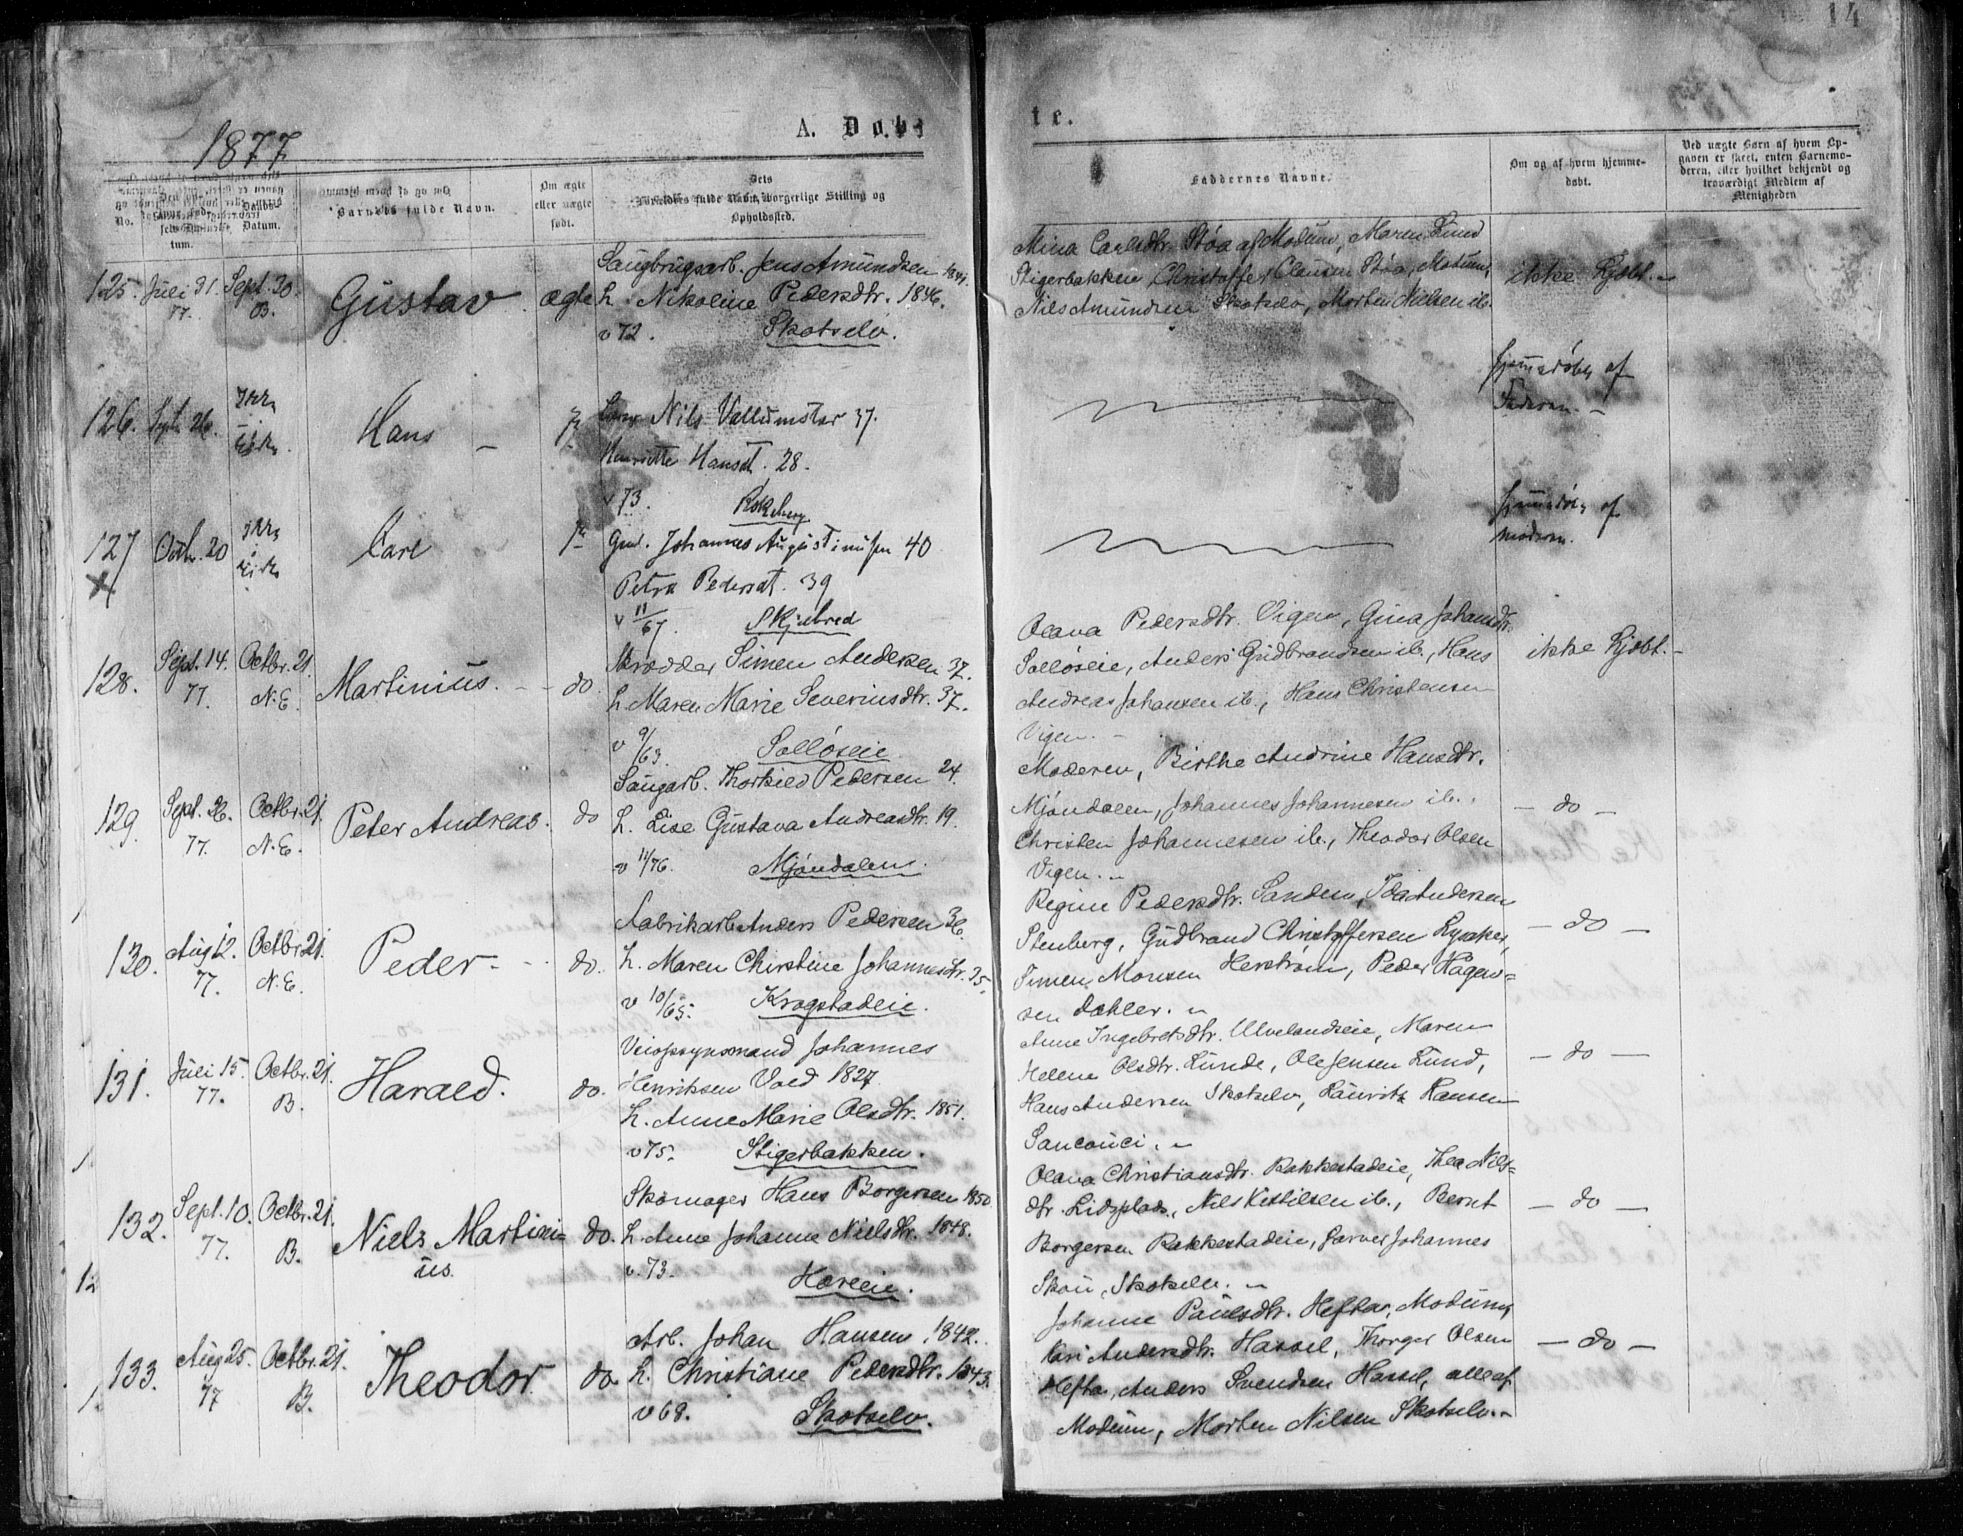 14
1877
A. Døbte.
No.
Datum.
Barnets fulde Navn.
Om ægte
eller uægte
født.
Dets
Forældres fulde Navn, borgerlige Stilling og
Opholdssted.
Faddernes Navne.
Om og af hvem hjemme-
døbt.
Ved uægte Børn af hvem Op-
gaven er skeet, enten Barnemo-
deren, eller hvilket bekjendt og
troværdigt Medlem af
Menigheden
125. Juli 31. 77. Sept. 30. B. Gustav ægte
Saugbrugsarb. Jens Amundsen 1841.
h. Nikoline Pedersdtr. 1846.
v 72. Skotselv.
Mina Carlsdtr. Støa af Modum, Maren Lund
Stigerbakken, Christoffer Clausen Støa, Modum,
Nils Amundsen Skotselv, Morten Nielsen ib.
ikke hjdbt.
126. Sept. 26. Hans
Nils Vallumstør 37.
Henriette Hansdt. 28.
v 73.
hjemmedøbt af
Faderen.
127 Octbr. 20 Carl
Johannes Augustinusen 40
Petra Pedersdt. 39
v 11/67. Skjæbred
hjemmedøbt af
moderen.
128. Sept. 14. 77. Octbr. 21. N.E. Martinius. do.
Skrædder Simen Andersen 37.
h. Maren Marie Severinsdtr. 37.
v 9/63. Solløseie
Olava Pedersdtr. Vigen, Gina Johansdtr.
Solløseie, Anders Gudbrandsen ib., Hans
Andreas Johansen ib., Hans Christensen
Vigen.
ikke hjdbt.
129. Sept. 26. 77. Octbr. 21. N.E. Peter Andreas. do
Saugarb. Thorkild Pedersen 24.
h. Lise Gustava Andreasdtr. 19.
v 11/76. Mjøndalen.
Moderen, Birthe Andrine Hansdtr.
Mjøndalen, Johannes Johannesen ib.,
Christen Johannesen ib., Theodor Olsen
Vigen.
do
130. Aug 12. 77. Octbr. 21. N.E. Peder. do.
Fabrikarb. Anders Pedersen 36.
h. Maren Christine Johannesdtr. 35.
v 10/65. Krogstadeie.
Regine Pedersdtr. Sanden, Ida Andersen
Stenberg, Gudbrand Christoffersen Lysaker,
Simen Monsen Herstrøm, Peder Hagen=
sen Dahler.
do
131. Juli 15. 77. Octbr. 21. B. Harald. do.
Veiopsynsmand Johannes
Henriksen Vold 1827.
h. Anne Marie Olsdtr. 1851.
v 75. Stigerbakken.
Anne Ingebretsdtr. Ulvelandseie, Maren
Helene Olsdtr. Lunde, Ole Jensen Lund,
Hans Andersen Skotselv, Lauritz Hansen
Sancouci.
do
132. Sept. 10. 77. Octbr. 21. B. Niels Martini=
us. do.
Skomager Hans Borgersen 1850.
h. Anne Johanne Nielsdtr. 1848.
v. 73. Horeie.
Olava Christiansdtr. Bakkestadeie, Thea Nils=
dtr. Lidsplads, Nils Kittilsen ib., Bernt
Borgersen Bakkestadeie, Garver Johannes
Skou, Skotselv.
do
133. Aug 25. 77 Octbr. 21. B. Theodor do.
Arb. Johan Hansen 1842.
h. Christiane Pedersdtr. 1843.
v 68. Skotselv.
Johanne Paulsdtr. Hefta, Modum,
Kari Andersdtr. Hassel, Thorger Olsen
Hefta, Anders Svendsen Hassel, alle af
Modum, Morten Nilsen Skotselv.
do